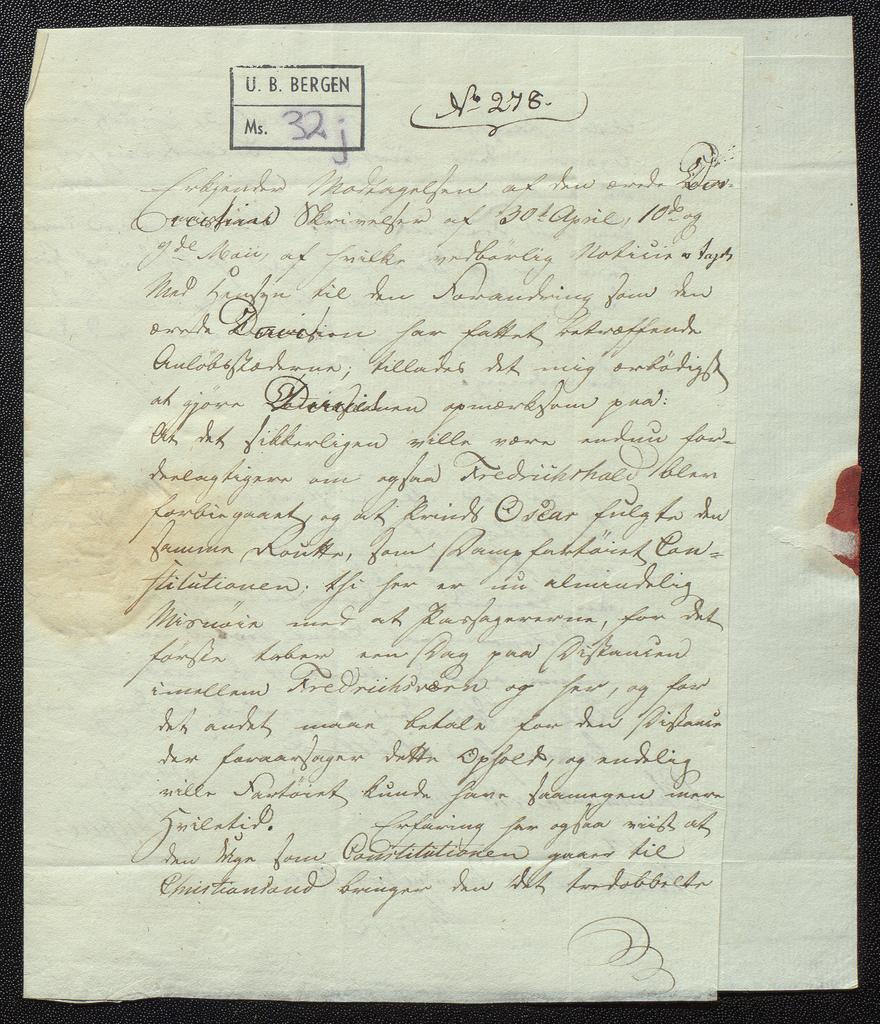 U. B. BERGEN
Ms. 32 j
No 278.
Erkjender Modtagelsen af den ærede
Skrivelser af 30te April, 10de og
9de Maii, af hvilke vedbørlig Notice er tagt
Med Hensyn til den Forandring som den
ærede Division har fattet betræffende
Anløbsstæderne; tillades det mig ærbødigst
at gjøre Divisionen opmærksom paa:
At det sikkerligen ville være endnu for-
deelagtigere om ogsaa Fredrichshald blev
forbiegaaet, og at Prinds Oscar fulgte den
samme Routte, som Dampfartøiet Con-
stitutionen; thi her er nu almindelig
Misnøie med at Passagererne, for det
første taber een Dag paa Distancen
imellem Fredrichsværn og her, og for
det andet maae betale for den Distance
der foraarsager dette Ophold, og endelig
ville Fartøiet kunde have saamegen mere
Hviletid. Erfaring har ogsaa viist at
den Uge som Constitutionen gaaer til
Christiansand bringer den det tredobbelte